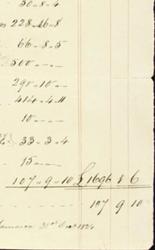 50-8-4
228-16-8
66-8-5
500
290-10
414-4-11
10
33-3-4
15
107-9-10 £1696 8 6
107 9 10
Jamaica 31st Decr 1824